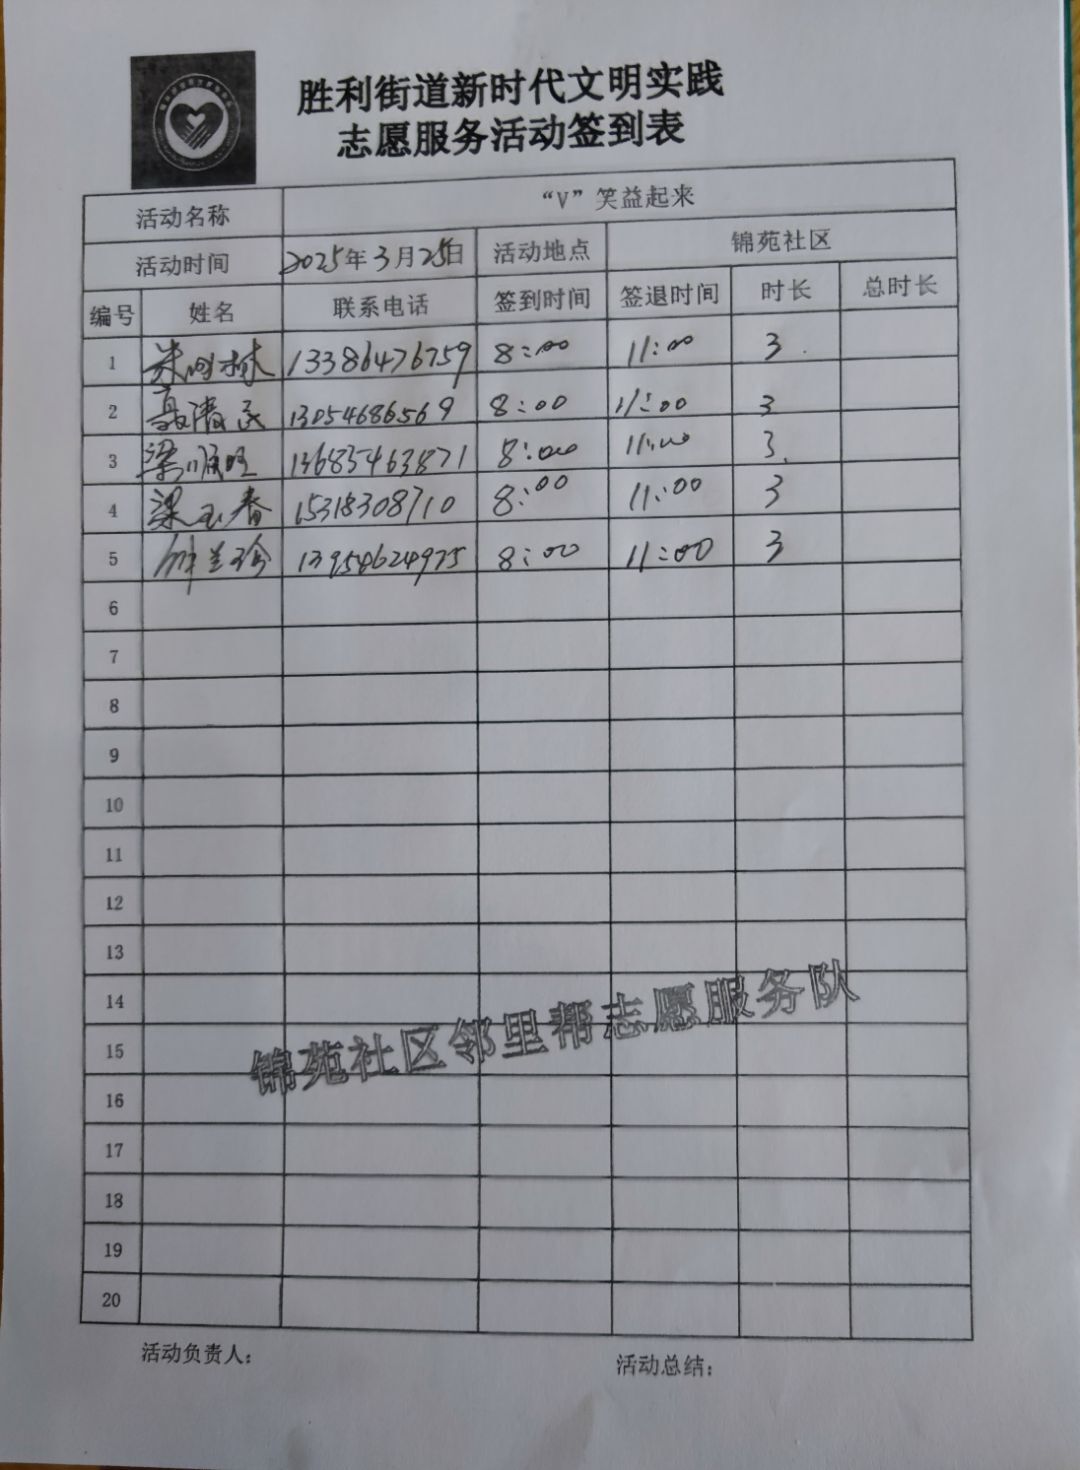 胜利街道新时代文明实践
志愿服务活动签到表
活动名称 “V”笑益起来
活动时间 2025年3月25日 活动地点 锦苑社区
编号 姓名 联系电话 签到时间 签退时间 时长 总时长
1 13386476759 8:00 11:00 3
2 聂清民 13054686569 8:00 11:00 3
3 梁顺旺 13685463871 8:00 11:00 3
4 梁玉春 15318308710 8:00 11:00 3
5 13954624975 8:00 11:00 3
6
7
8
9
10
11
12
13
14
15
16
17
18
19
20
锦苑社区邻里帮志愿服务队
活动负责人: 活动总结: